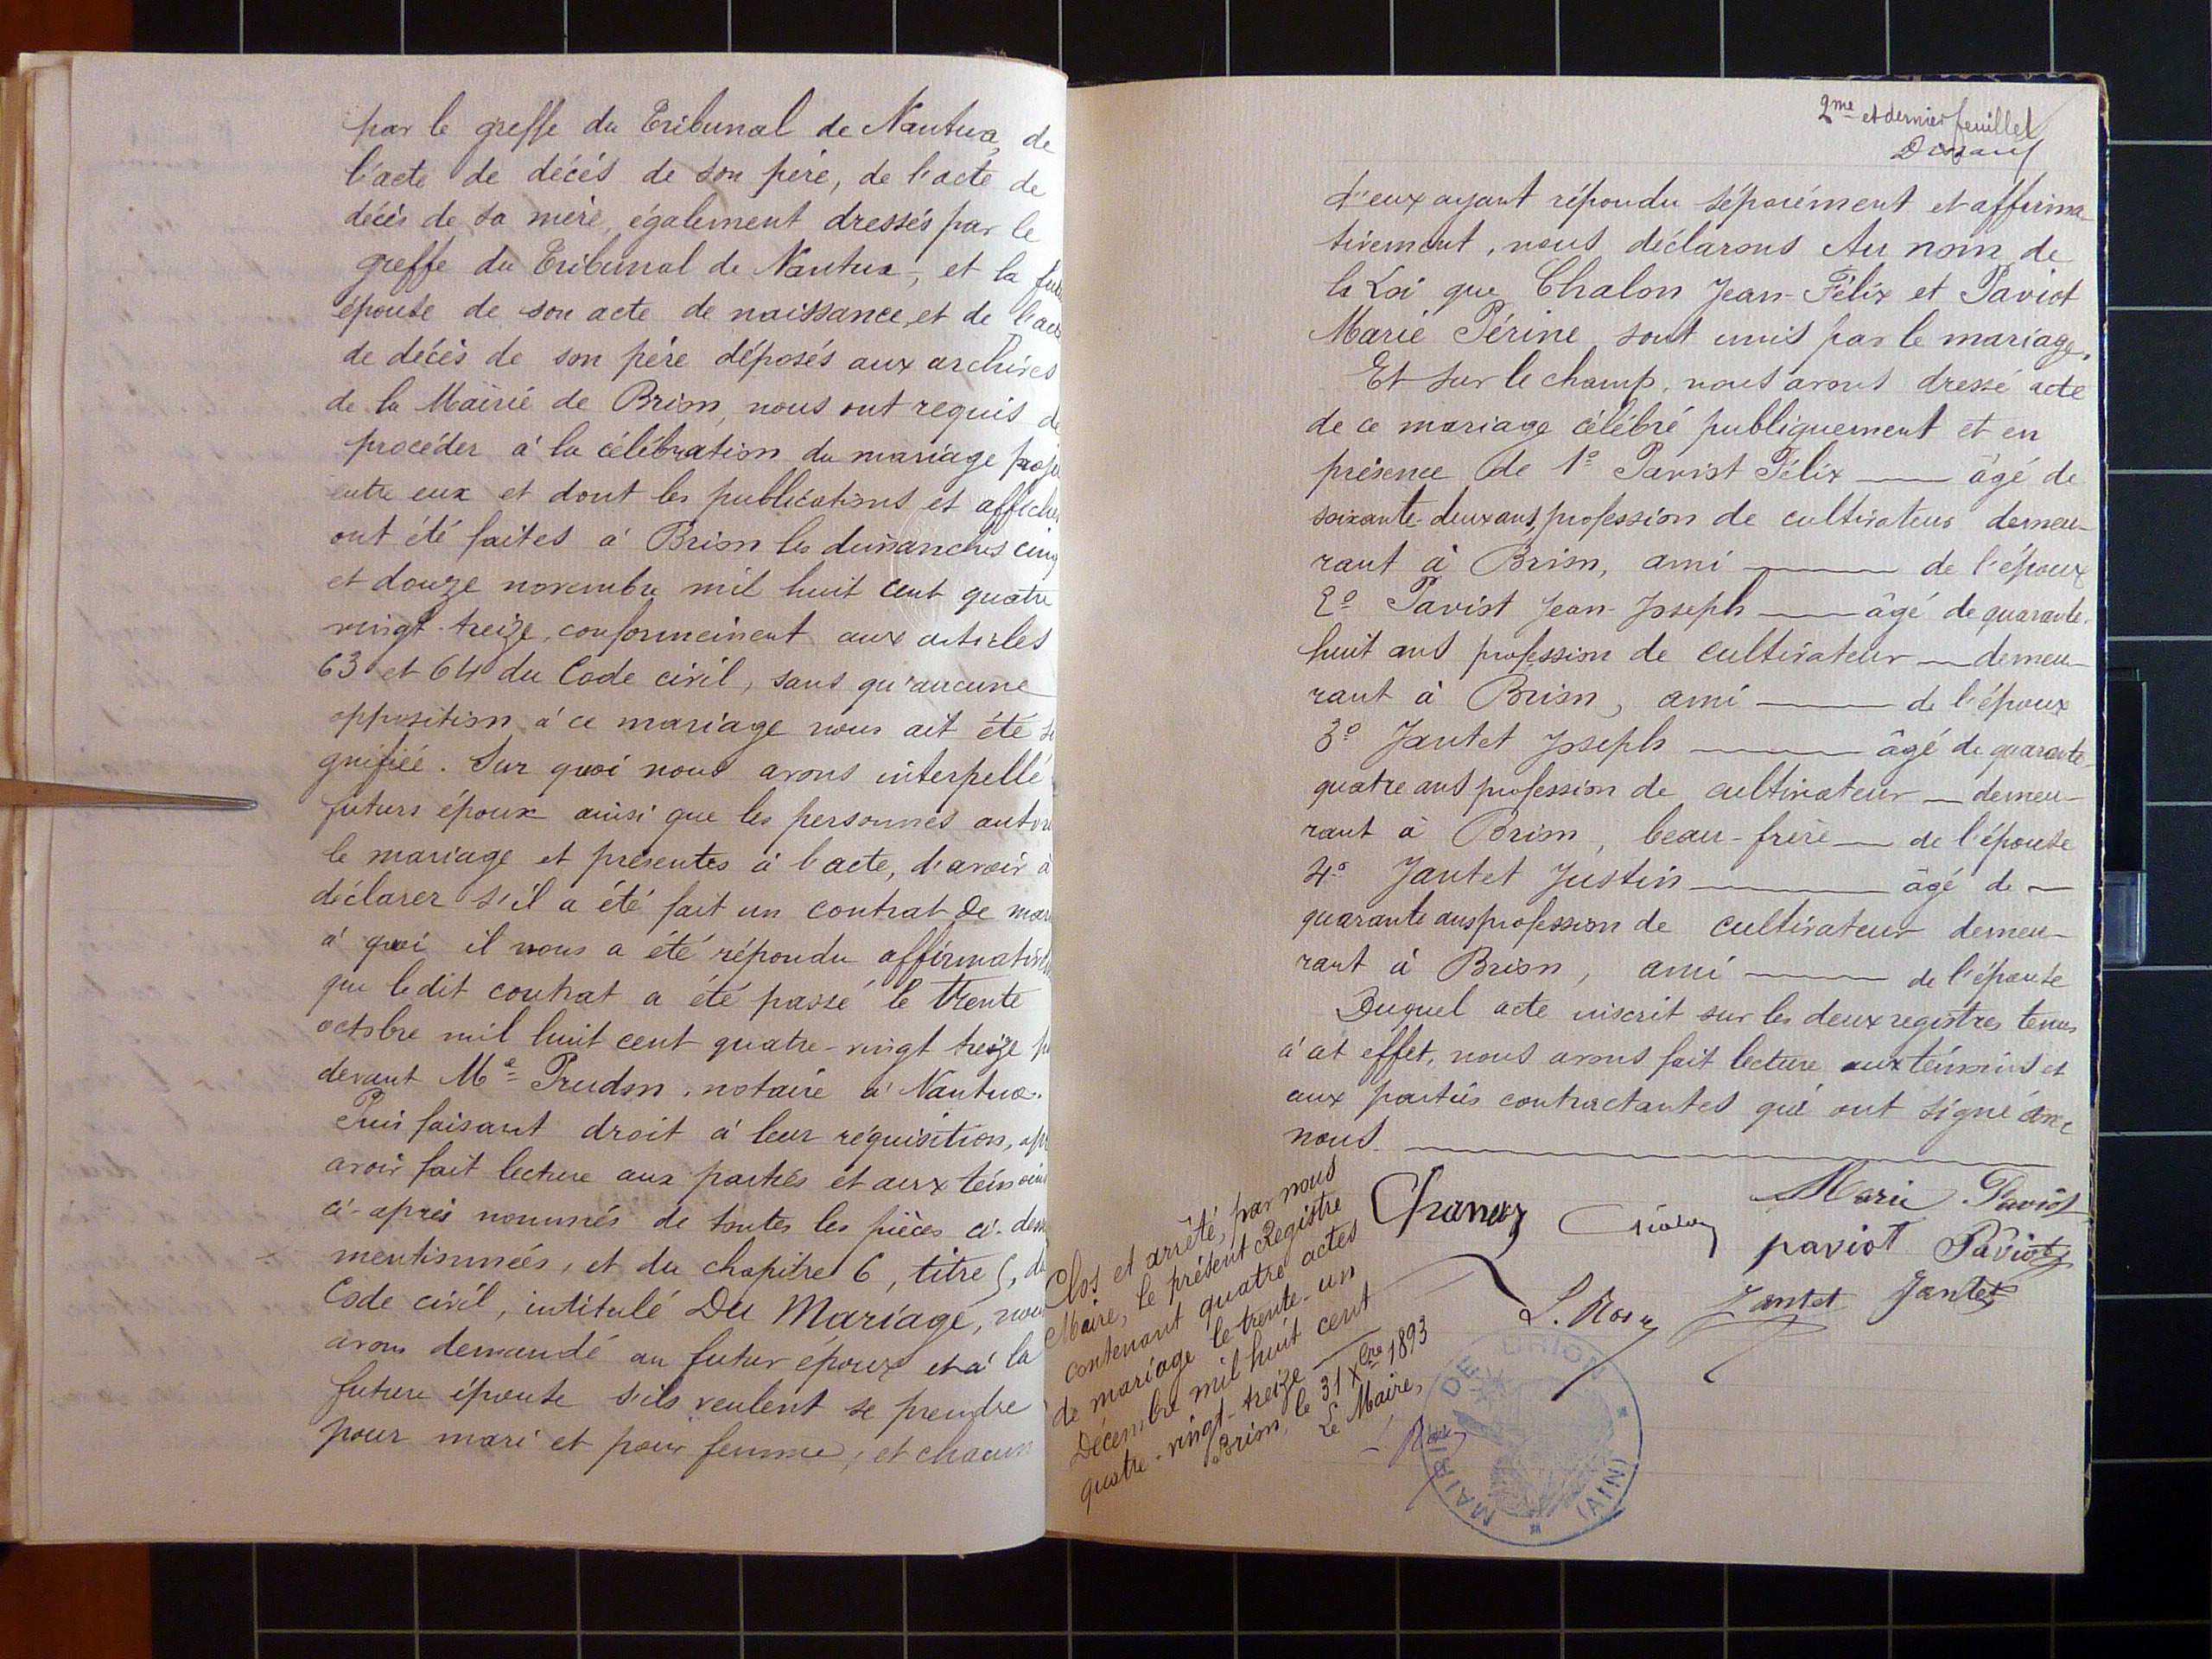 par le greffe du Tribunal de Nantua, de
l'acte de décès de son père, de l'acte de
décès de sa mère, également dressés par le
greffe du Tribunal de Nantua, et la
épouse de son acte de naissance, et de
de décès de son père déposés aux archives
de la Mairie de Brion, nous ont requis de
procéder à la célébration du mariage
entre eux et dont les publications et affiches
ont été faites à Brion les dimanches cinq
et douze novembre mil huit cent quatre
vingt-treize, conformément aux articles
63 et 64 du Code civil, sans qu'aucune
opposition à ce mariage nous ait été si
gnifiée. Sur quoi nous avons interpellé
futurs époux ainsi que les personnes
le mariage et présentes à l'acte, d'avoir à
déclarer s'il a été fait un contrat de
à quoi il nous a été répondu
que ledit contrat a été passé le trente
octobre mil huit cent quatre-vingt treize
devant Me Prudon, notaire à Nantua.
Puis faisant droit à leur réquisition,
avoir fait lecture aux parties et aux
ci-après nommés de toutes les pièces ci-
mentionnées, et du chapitre 6, titre 5, du
Code civil, intitulé Du Mariage, nous
avons demandé au futur époux et à la
future épouse s'ils veulent se prendre
pour mari et pour femme, et chacun
2me et dernier feuillet
d'eux ayant répondu séparément et affirma-
tivement, nous déclarons Au nom de
la Loi que Chalon Jean-Félix et Paviot
Marie Périne, sont unis par le mariage.
Et sur le champ, nous avons dressé acte
de ce mariage célébré publiquement et en
présence de 1º Paviot Félix — âgé de
soixante-deux ans, profession de cultivateur demeu-
rant à Brion, ami — de l'époux
2º Paviot Jean-Joseph — âgé de quarante-
huit ans profession de cultivateur — demeu-
rant à Brion, ami — de l'époux
3º Jantet Joseph — âgé de quarante-
quatre ans profession de cultivateur — demeu-
rant à Brion, beau-frère — de l'épouse
4º Jantet Justin — âgé de —
quarante ans profession de cultivateur demeu-
rant à Brion, ami — de l'épouse
Duquel acte inscrit sur les deux registres tenus
à cet effet, nous avons fait lecture aux témoins et
aux parties contractantes qui ont signé avec
nous. —
Marie Paviot
Chalon
paviot Paviot
Jantet Jantet
Clos et arrêté, par nous
Maire, le présent Registre
contenant quatre actes
de mariage le trente-un
Décembre mil huit cent
quatre-vingt-treize —
Brion, le 31 Xbre 1893
Le Maire,
MAIRIE DE BRION
(AIN)